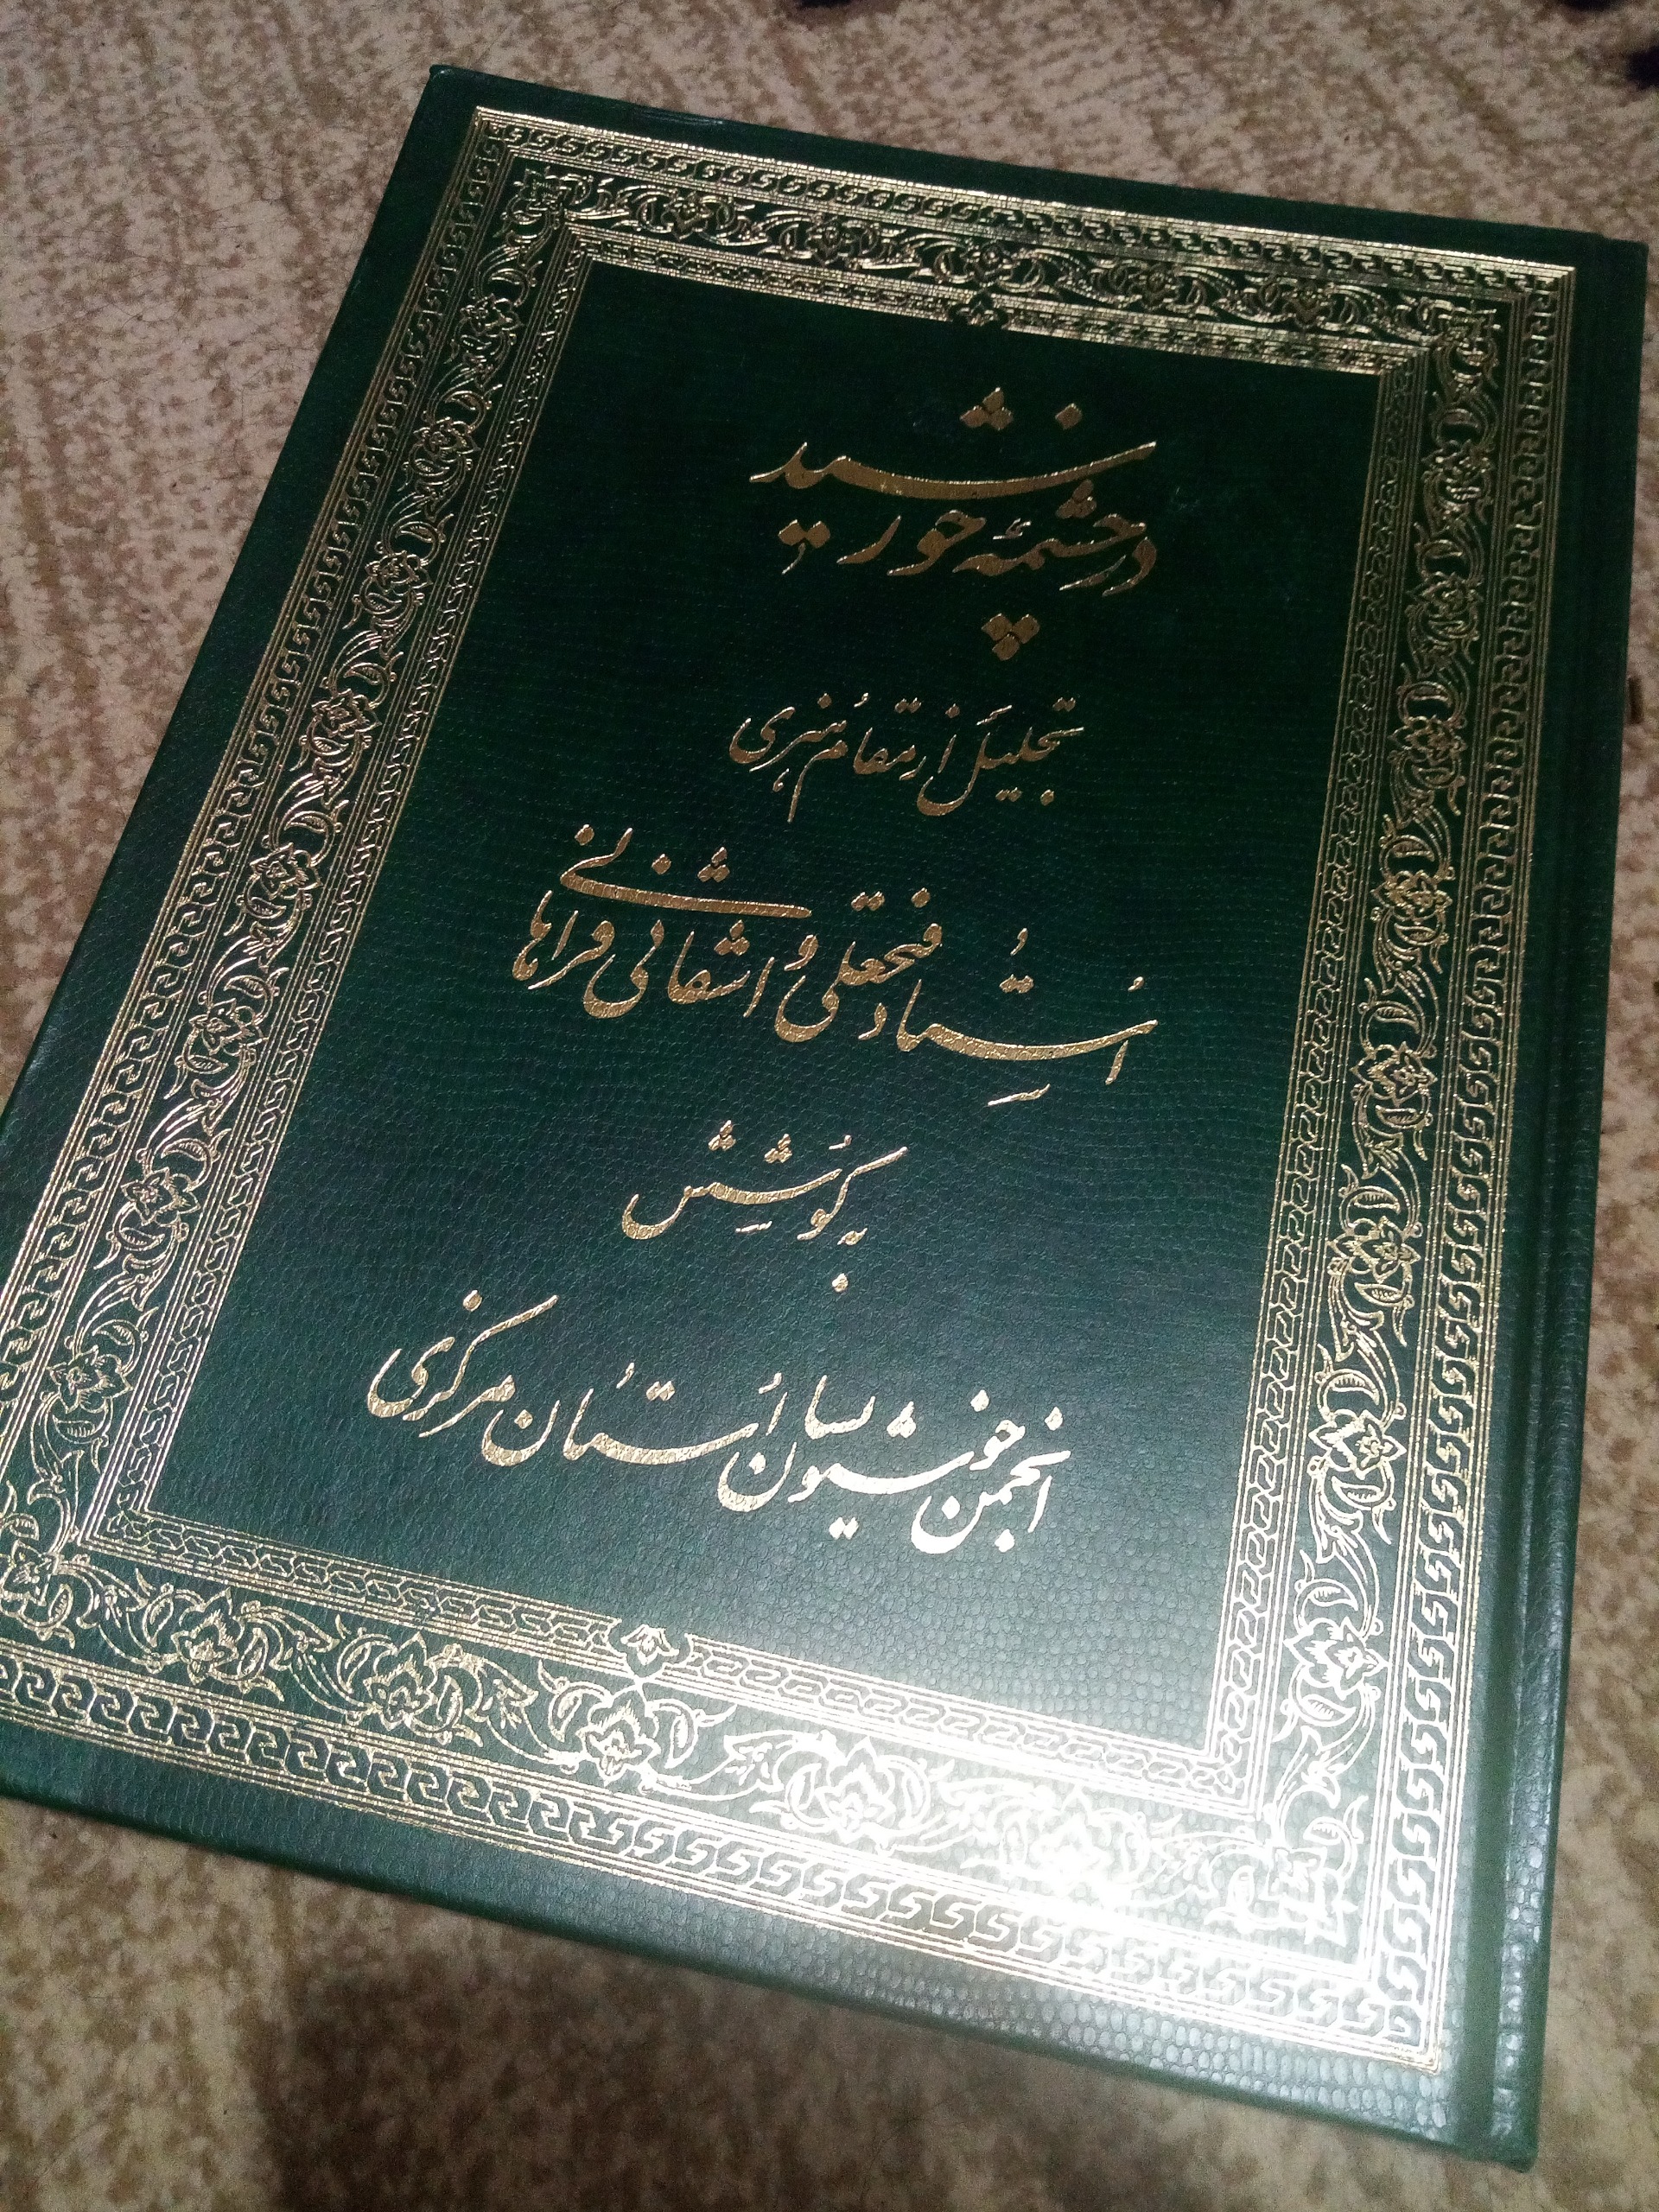 در چشمهٔ خورشید
تجلیل از مقام هنری
استاد فتحعلی واشقانی فراهانی
به کوشش
انجمن خوشنویسان استان مرکزی